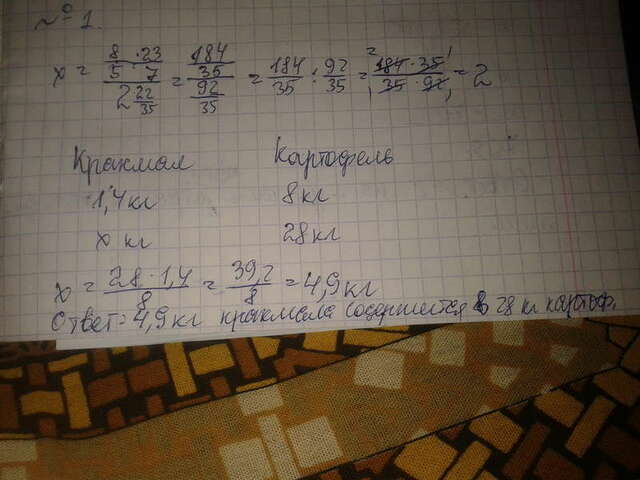 № 1.
x = (8/5 · 23/7) / (2 22/35) = (184/35) / (92/35) = 184/35 : 92/35 = (184 · 35) / (35 · 92) = 2
Крахмал Картофель
1,4 кг 8 кг
x кг 28 кг
x = (28 · 1,4) / 8 = 39,2 / 8 = 4,9 кг
Ответ: 4,9 кг крахмала содержится в 28 кг картоф.